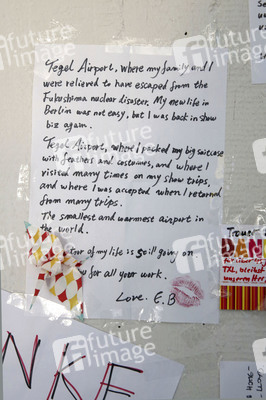 Tegel Airport, where my family and I
were relieved to have escaped from the
Fukushima nuclear disaster. My new life in
Berlin was not easy, but I was back in show
biz again.
Tegel Airport, where I packed my big suitcase
with feathers and costumes, and where I
visited many times on my show trips,
and where I was accepted when I returned
from many trips.
The smallest and warmest airport in
the world.
of my life is still going on
for all your work.
Love. E.B
DEN
TXL,
NKE
future
image